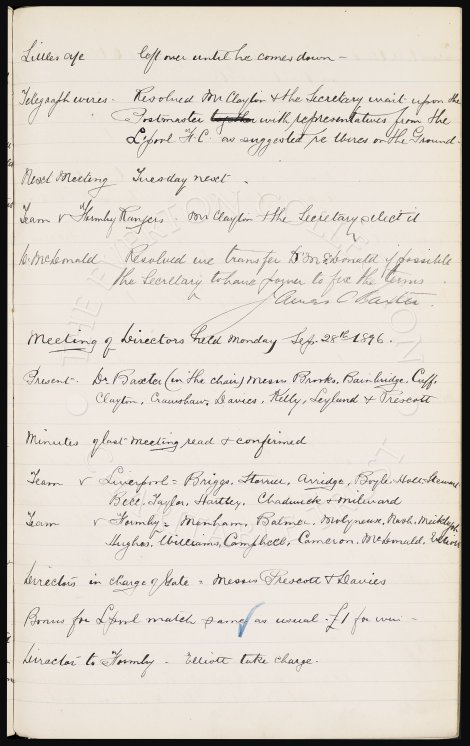 Littles age left over until he comes down -
Telegraph wires - Resolved Mr Clayton & the Secretary wait upon the
Postmaster together with representatives from the
L'pool F.C. as suggested re Wires on the Ground.
Next Meeting Tuesday next -
Team v Formby Rangers Mr Clayton & the Secretary select it
D. McDonald Resolved we transfer D. McDonald if possible
the Secretary to have power to fix the terms
James C Baxter.
Meeting of Directors held Monday Sep. 28th 1896.
Present - Dr Baxter (in the chair) Messrs Brooks, Bainbridge, Cuff,
Clayton, Crawshaw, Davies, Kelly, Leyland & Prescott
Minutes of last meeting read & confirmed
Team v Liverpool = Briggs, Storrier, Arridge, Boyle, Holt, Stewart
Bell, Taylor, Hartley, Chadwick & Milward
Team v Formby = Menham, Balmer, Molyneux, Nash, Meiklejohn
Hughes, Williams, Campbell, Cameron, McDonald,
Directors in charge of Gate = Messrs Prescott & Davies
Bonus for L'pool match same as usual - £1 for win -
Director to Formby - Elliott take charge.
THE EVERTON COLLECTION